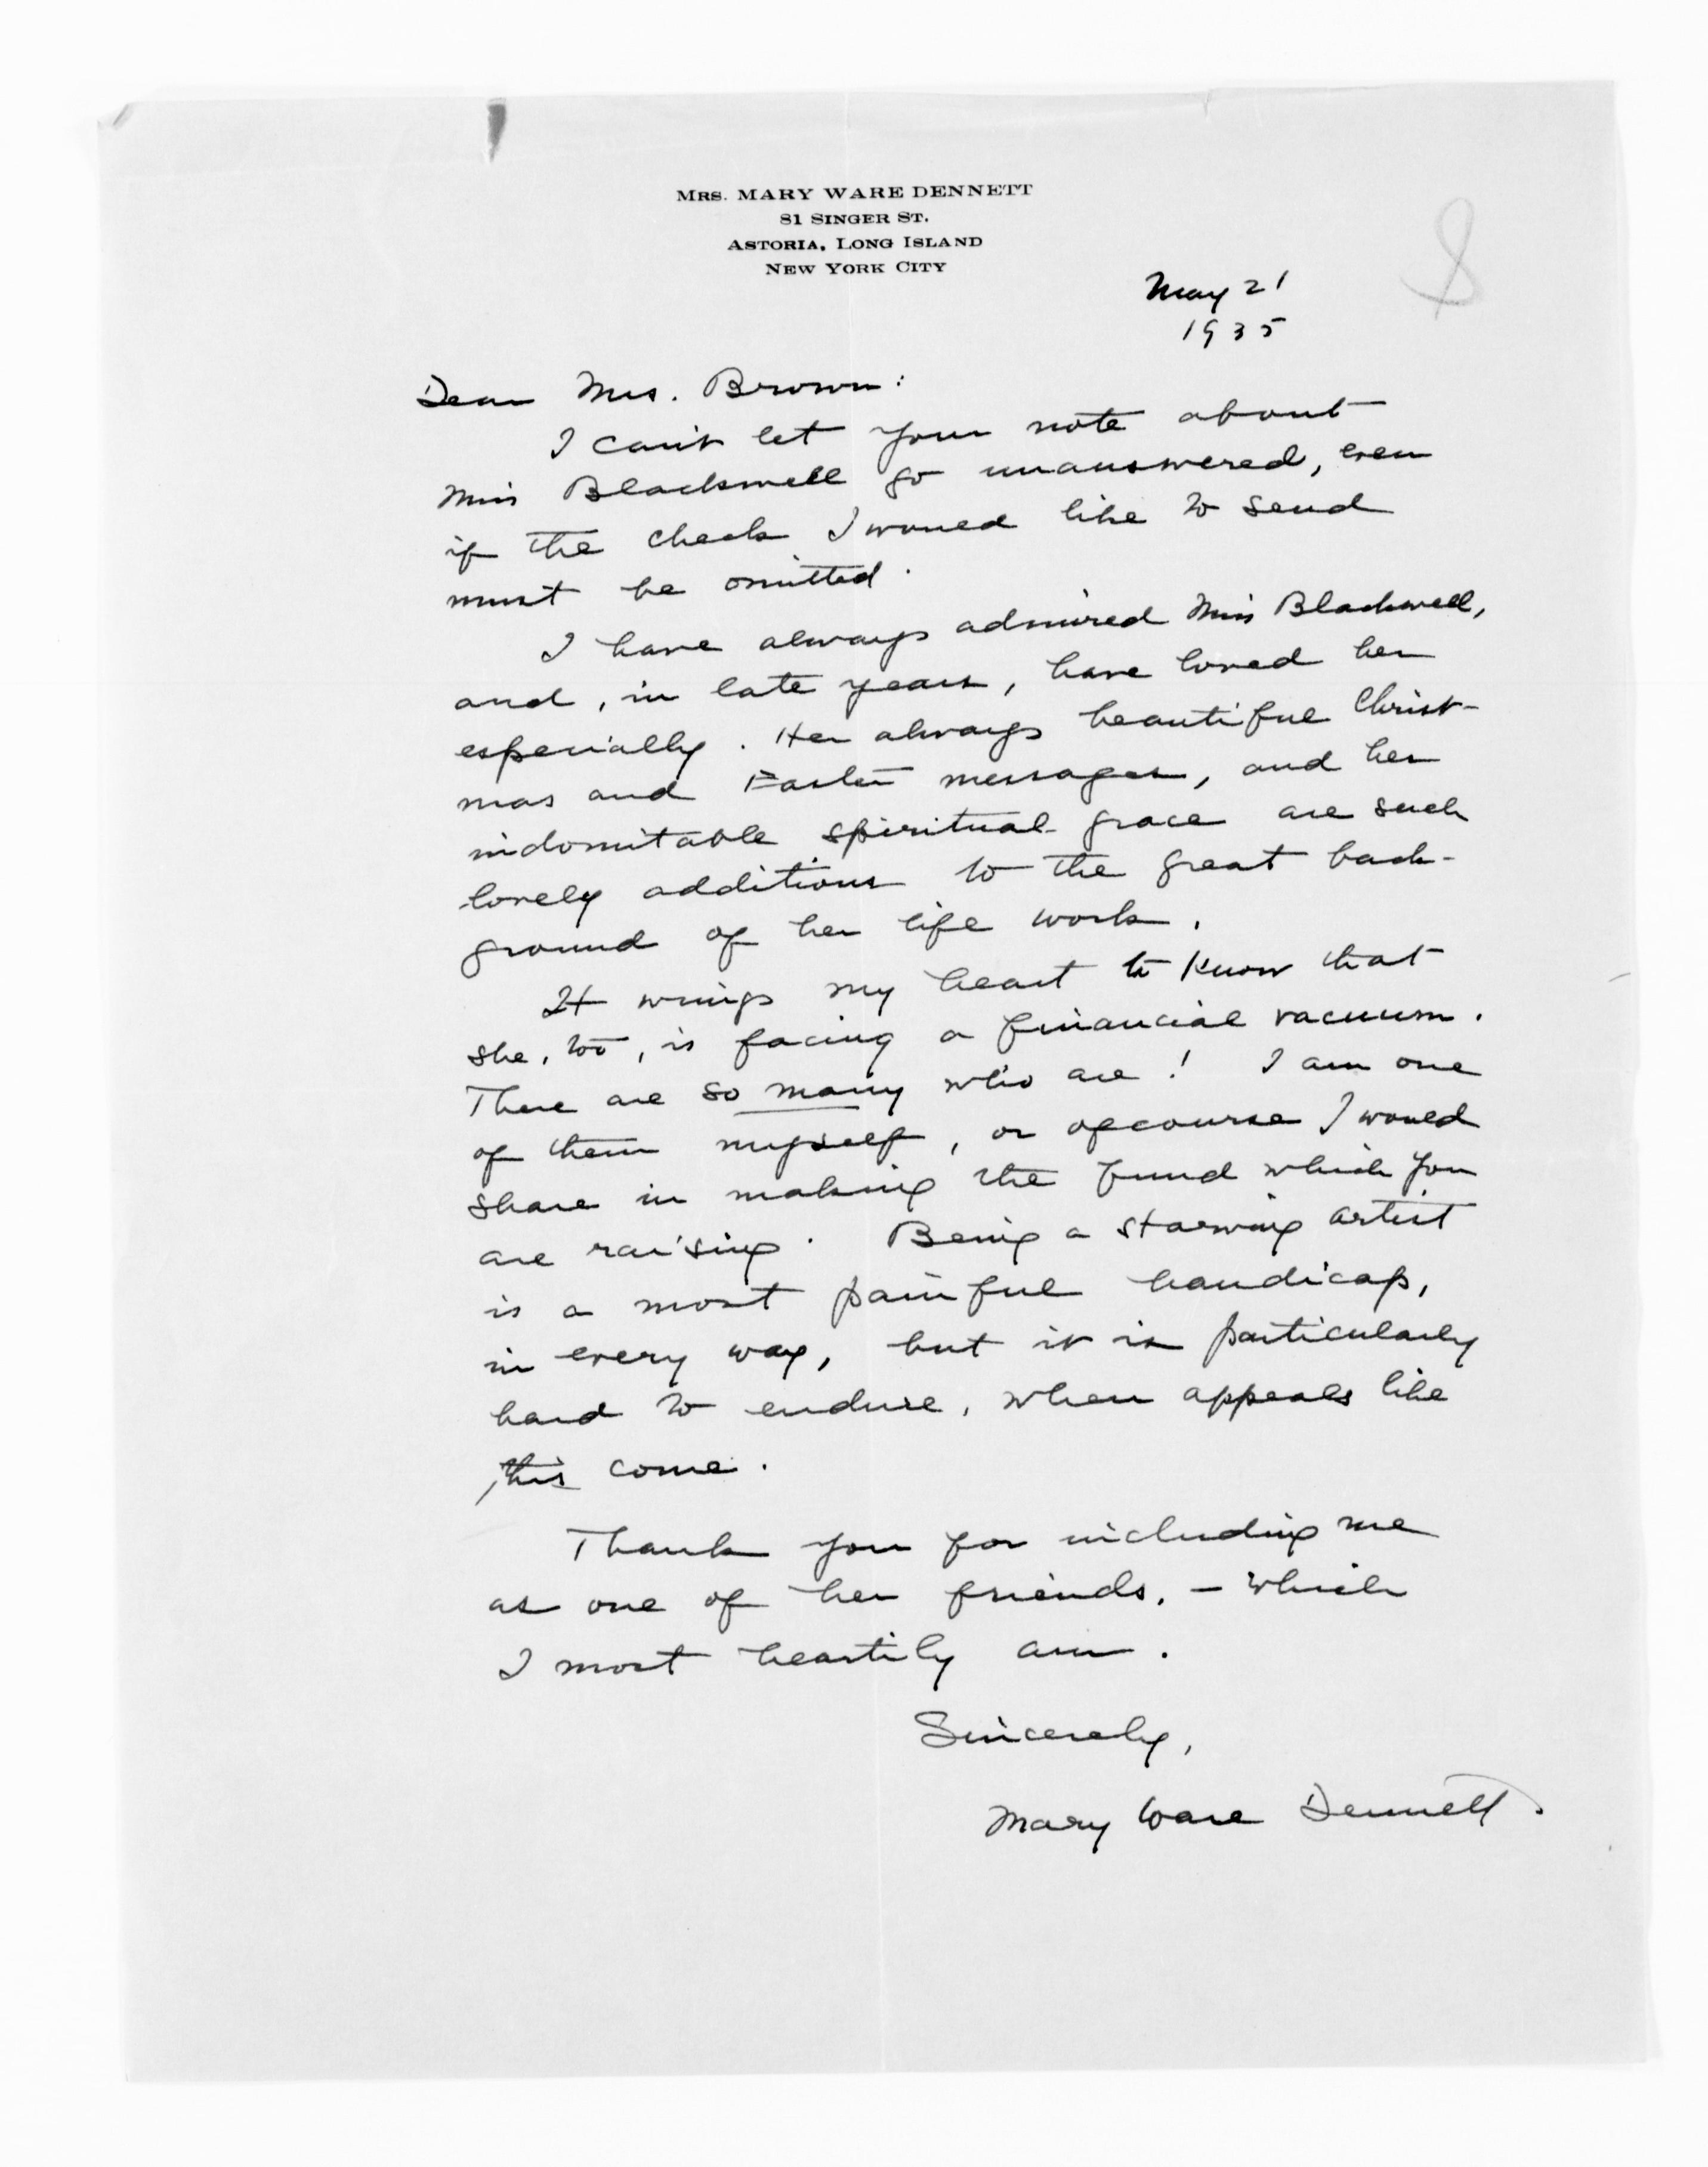 MRS. MARY WARE DENNETT
81 SINGER ST.
ASTORIA, LONG ISLAND
NEW YORK CITY
May 21
1935
Dear Mrs. Brown:
I can't let your note about
Miss Blackwell go unanswered, even
if the check I would like to send
must be omitted.
I have always admired Miss Blackwell,
and, in late years, have loved her
especially. Her always beautiful Christ-
mas and Easter messages, and her
indomitable spiritual grace are such
lovely additions to the great back-
ground of her life work.
It wrings my heart to know that
she, too, is facing a financial vacuum.
There are so many who are! I am one
of them myself, or ofcourse I would
share in making the fund which you
are raising. Being a starving artist
is a most painful handicap,
in every way, but it is particularly
hard to endure, when appeals like
this come.
Thank you for including me
as one of her friends, - which
I most heartily am.
Sincerely,
Mary Ware Dennett.